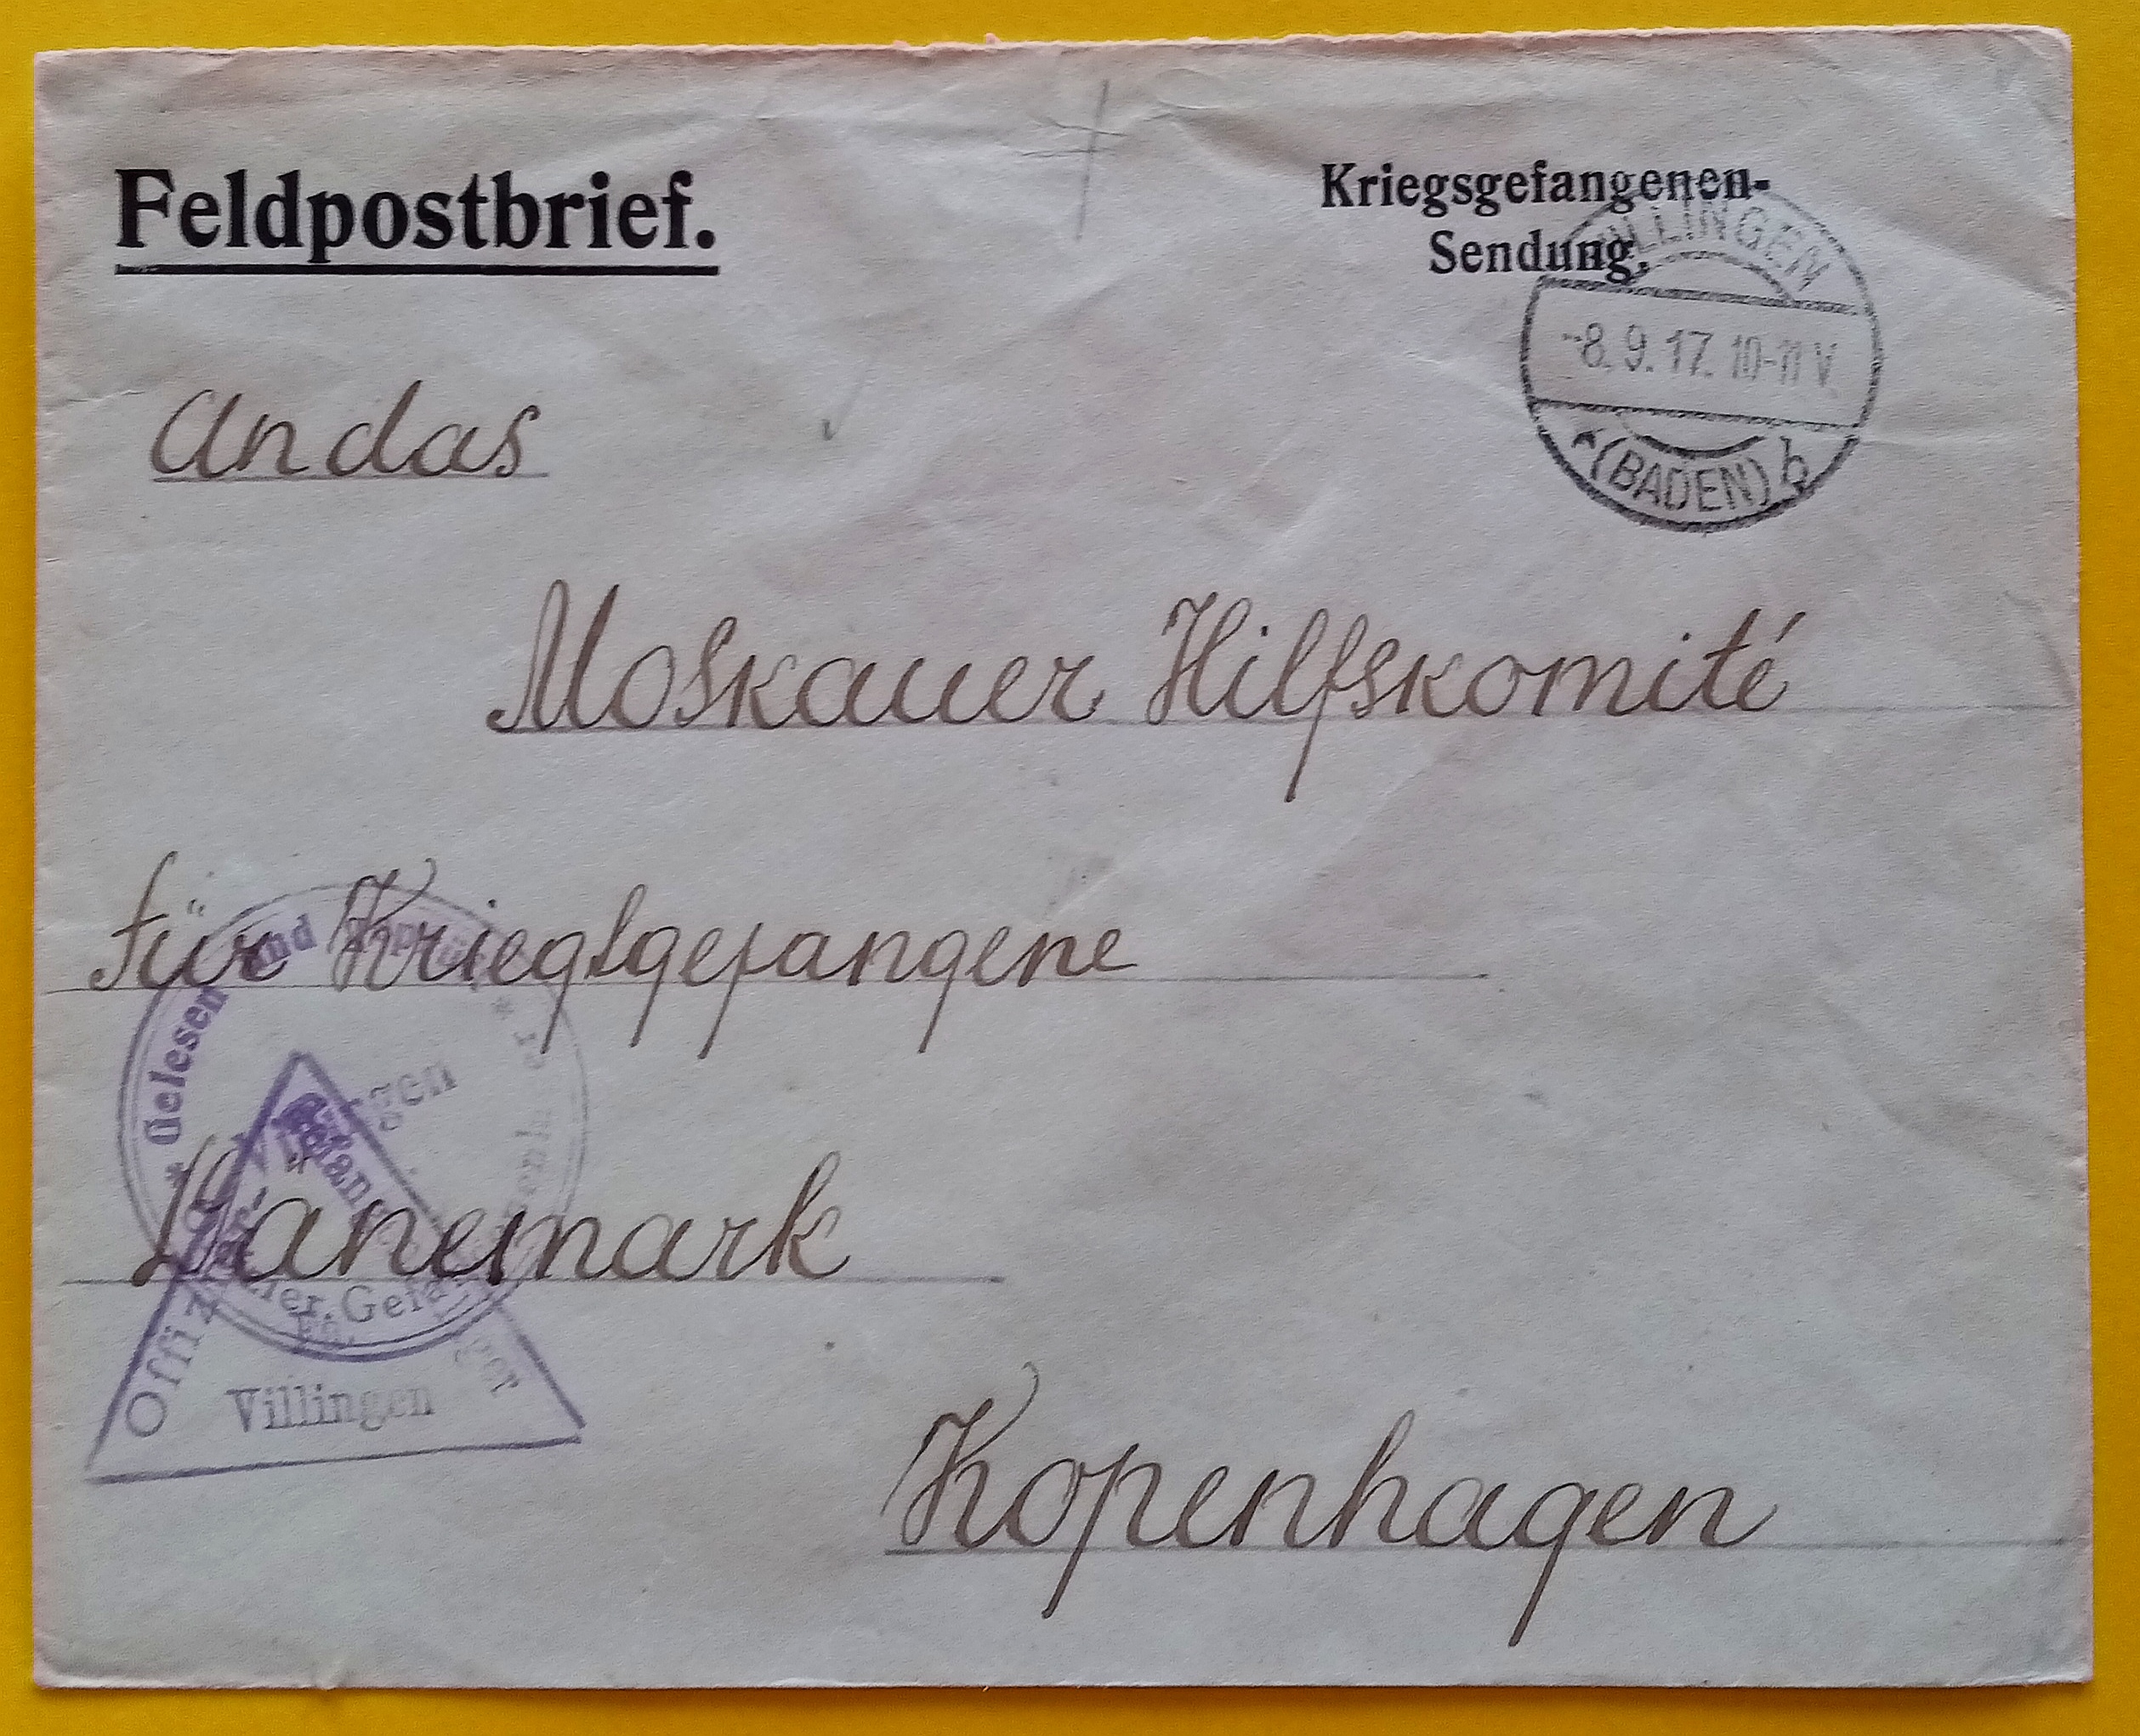 Feldpostbrief.
Kriegsgefangenen-
Sendung.
VILLINGEN
-8.9.17. 10-11 V.
* (BADEN) b
An das
Moskauer Hilfskomité
für Kriegsgefangene
Dänemark
Kopenhagen
Gelesen und
Villingen